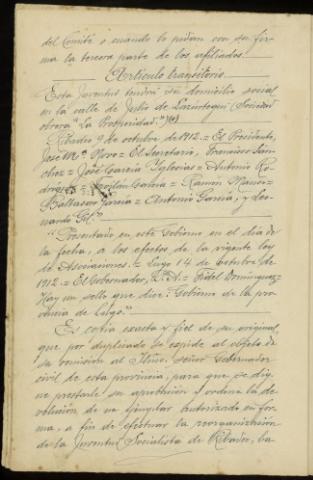 del Comité o cuando lo pidan con su fir-
ma la tercera parte de los afiliados.
Artículo transitorio.
Esta Juventud tendrá su domicilio social
en la calle de Justo de Lazúrtegui (Sociedad
obrera "La Prosperidad")
Ribadeo 9 de octubre de 1912.= El Presidente,
José Mª Moro = El Secretario, Francisco Sán-
chez = José García Iglesias = Antonio Ro-
García = Ramón
Baltasar García = Antonio García, y Leo-
nardo Gil."
"Presentado en este Gobierno en el día de
la fecha, a los efectos de la vigente ley
de Asociaciones.= Lugo 14 de Octubre de
1912.= El Gobernador, = Fidel Domínguez=
Hay un sello que dice: Gobierno de la pro-
vincia de Lugo."
Es copia exacta y fiel de su original,
que por duplicado se expide al objeto de
su remisión al Iltmo. Señor Gobernador
civil de esta provincia, para que se dig-
ne prestarle su aprobación y ordene la de-
volución de un ejemplar autorizado en for-
ma, a fin de efectuar la reorganización
de la Juventud Socialista de Ribadeo, ba